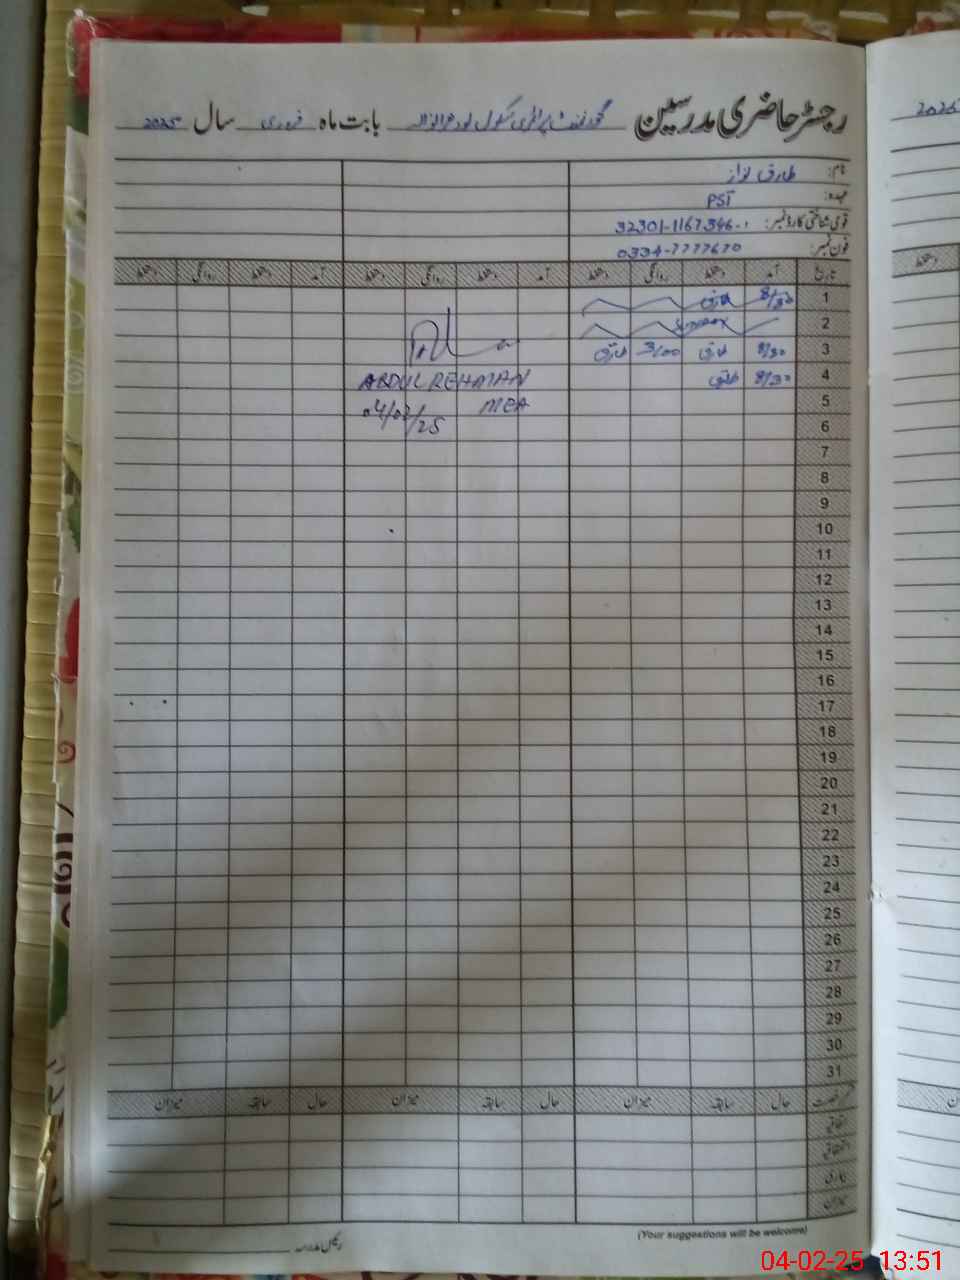 رجسٹر حاضری مدرسین گورنمنٹ پرائمری سکول بابت ماہ فروری سال 2025
2025
نام: طارق نواز
عہدہ: PST
قومی شناختی کارڈ نمبر:
فون نمبر: 0334-7777670
تاریخ آمد دستخط روانگی دستخط آمد دستخط روانگی دستخط آمد دستخط روانگی دستخط
1 8/30 طارق
2 Sunday
3 8/30 طارق 3/00 طارق
4 8/30 طارق
ABDUL REHMAN
5
MEA
04/02/25
6
7
8
9
10
11
12
13
14
15
16
17
18
19
20
21
22
23
24
25
26
27
28
29
30
31
حال سابقہ میزان حال سابقہ میزان حال سابقہ میزان
اتفاقیہ
میزان
رئیس مدرسہ
(Your suggestions will be welcome)
04-02-25 13:51